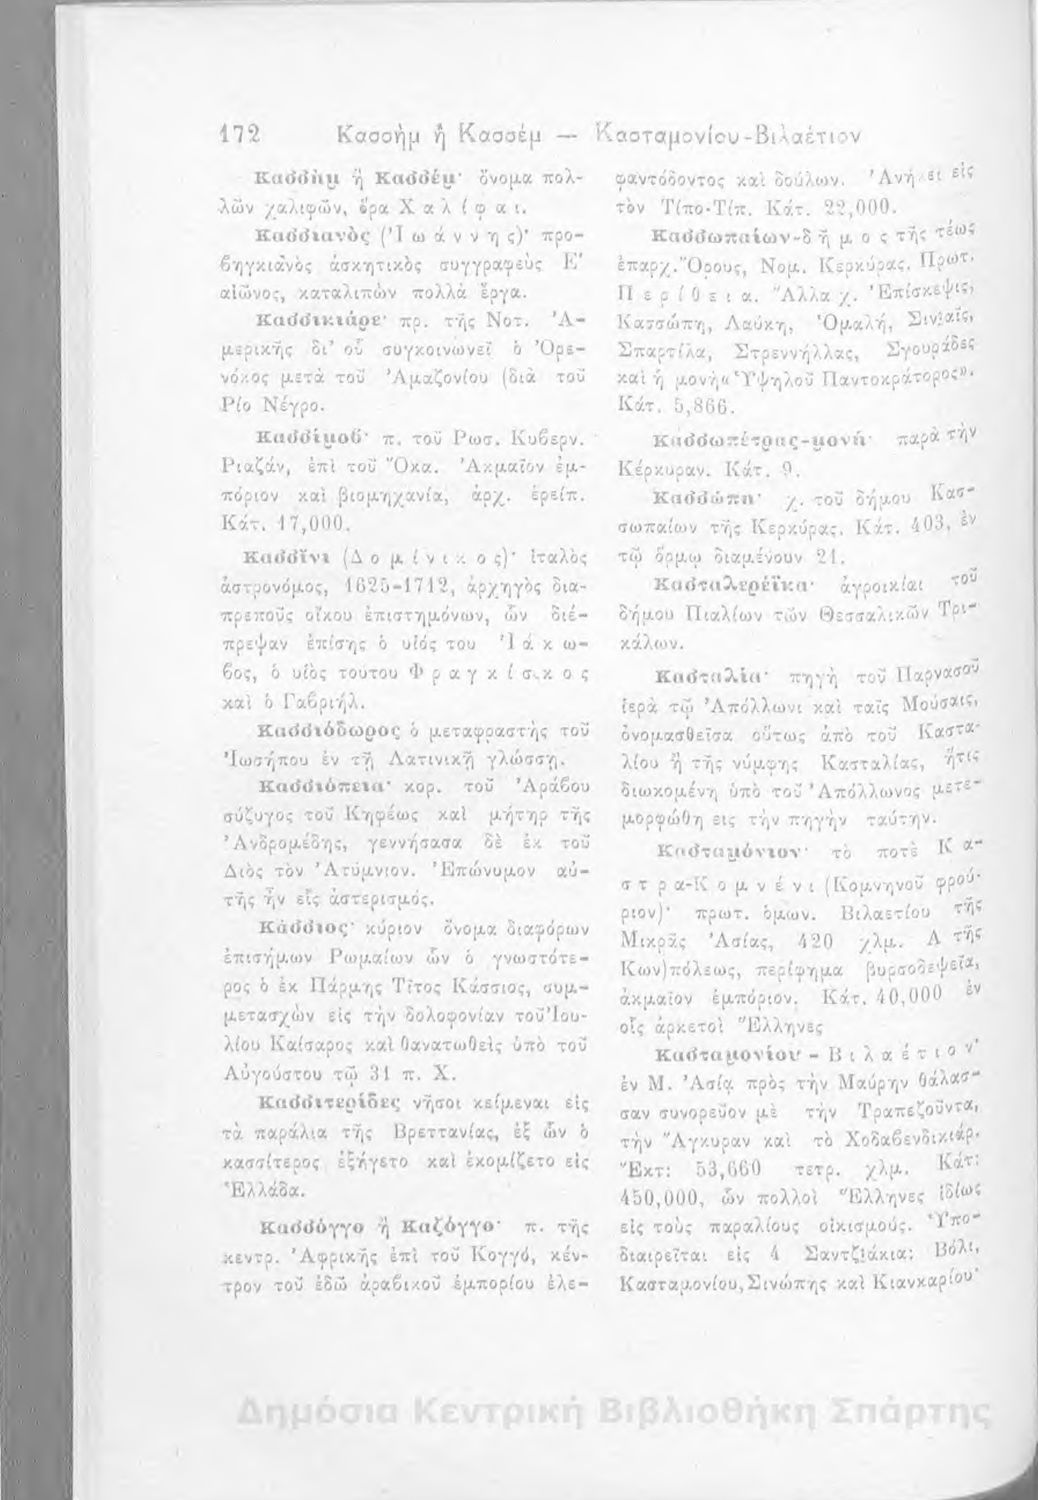 172 Κασσὴμ ἢ Κασσέμ — Κασταμονίου-Βιλαέτιον
Κασσὴμ ἢ Κασσέμ· ὄνομα πολ-
λῶν χαλιφῶν, ὅρα Χαλίφαι.
Κασσιανὸς (Ἰωάννης)· προ-
βηγκιανὸς ἀσκητικὸς συγγραφεὺς Ε΄
αἰῶνος, καταλιπὼν πολλὰ ἔργα.
Κασσικιάρε· πρ. τῆς Νοτ. Ἀ-
μερικῆς δι’ οὗ συγκοινωνεῖ ὁ Ὀρε-
νόκος μετὰ τοῦ Ἀμαζονίου (διὰ τοῦ
Ρίο Νέγρο.
Κασσίμοβ· π. τοῦ Ρωσ. Κυβερν.
Ριαζάν, ἐπὶ τοῦ Ὄκα. Ἀκμαῖον ἐμ-
πόριον καὶ βιομηχανία, ἀρχ. ἐρείπ.
Κάτ. 17,000.
Κασσίνι (Δομίνικος)· ἰταλὸς
ἀστρονόμος, 1625-1712, ἀρχηγὸς δια-
πρεποῦς οἴκου ἐπιστημόνων, ὧν διέ-
πρεψαν ἐπίσης ὁ υἱός του Ἰάκω-
βος, ὁ υἱὸς τούτου Φραγκίσκος
καὶ ὁ Γαβριήλ.
Κασσιόδωρος ὁ μεταφραστὴς τοῦ
Ἰωσήπου ἐν τῇ Λατινικῇ γλώσσῃ.
Κασσιόπεια· κορ. τοῦ Ἀράβου
σύζυγος τοῦ Κηφέως καὶ μήτηρ τῆς
Ἀνδρομέδης, γεννήσασα δὲ ἐκ τοῦ
Διὸς τὸν Ἀτύμνιον. Ἐπώνυμον αὐ-
τῆς ἦν εἷς ἀστερισμός.
Κάσσιος· κύριον ὄνομα διαφόρων
ἐπισήμων Ρωμαίων ὧν ὁ γνωστότε-
ρος ὁ ἐκ Πάρμης Τῖτος Κάσσιος, συμ-
μετασχὼν εἰς τὴν δολοφονίαν τοῦ Ἰου-
λίου Καίσαρος καὶ θανατωθεὶς ὑπὸ τοῦ
Αὐγούστου τῷ 31 π. Χ.
Κασσιτερίδες νῆσοι κείμεναι εἰς
τὰ παράλια τῆς Βρεττανίας, ἐξ ὧν ὁ
κασσίτερος ἐξήγετο καὶ ἐκομίζετο εἰς
Ἑλλάδα.
Κασσόγγο ἢ Καζόγγο· π. τῆς
κεντρ. Ἀφρικῆς ἐπὶ τοῦ Κογγό, κέν-
τρον τοῦ ἐδῶ ἀραβικοῦ ἐμπορίου ἐλε-
φαντόδοντος καὶ δούλων. Ἀνήκει εἰς
τὸν Τίπο-Τίπ. Κάτ. 22,000.
Κασσωπαίων-δῆμος τῆς τέως
ἐπαρχ. Ὄρους, Νομ. Κερκύρας. Πρωτ.
Περίθεια. Ἄλλα χ. Ἐπίσκεψις,
Κασσώπη, Λαύκη, Ὁμαλή, Σινιαῖς,
Σπαρτίλα, Στρεννήλλας, Σγουράδες
καὶ ἡ μονὴ «Ὑψηλοῦ Παντοκράτορος».
Κάτ. 5,866.
Κασσωπέτρας-μονὴ· παρὰ τὴν
Κέρκυραν. Κάτ. 9.
Κασσώπη· χ. τοῦ δήμου Κασ-
σωπαίων τῆς Κερκύρας. Κάτ. 403, ἐν
τῷ ὅρμῳ διαμένουν 21.
Κασταλερέϊκα· ἀγροικίαι τοῦ
δήμου Πιαλίων τῶν Θεσσαλικῶν Τρι-
κάλων.
Κασταλία· πηγὴ τοῦ Παρνασοῦ
ἱερὰ τῷ Ἀπόλλωνι καὶ ταῖς Μούσαις,
ὀνομασθεῖσα οὕτως ἀπὸ τοῦ Καστα-
λίου ἢ τῆς νύμφης Κασταλίας, ἥτις
διωκομένη ὑπὸ τοῦ Ἀπόλλωνος μετε-
μορφώθη εἰς τὴν πηγὴν ταύτην.
Κασταμόνιον· τὸ ποτὲ Κα-
στρα-Κομνένι (Κομνηνοῦ φρού-
ριον)· πρωτ. ὁμων. Βιλαετίου τῆς
Μικρᾶς Ἀσίας, 420 χλμ. Α τῆς
Κων)πόλεως, περίφημα βυρσοδεψεῖα,
ἀκμαῖον ἐμπόριον. Κάτ. 40,000 ἐν
οἷς ἀρκετοὶ Ἕλληνες
Κασταμονίου-Βιλαέτιον·
ἐν Μ. Ἀσίᾳ πρὸς τὴν Μαύρην θάλασ-
σαν συνορεῦον μὲ τὴν Τραπεζοῦντα,
τὴν Ἄγκυραν καὶ τὸ Χοδαβενδικιάρ.
Ἔκτ: 53,660 τετρ. χλμ. Κάτ:
450,000, ὧν πολλοὶ Ἕλληνες ἰδίως
εἰς τοὺς παραλίους οἰκισμούς. Ὑπο-
διαιρεῖται εἰς 4 Σαντζιάκια: Βόλι,
Κασταμονίου, Σινώπης καὶ Κιανκαρίου·
Δημόσια Κεντρική Βιβλιοθήκη Σπάρτης